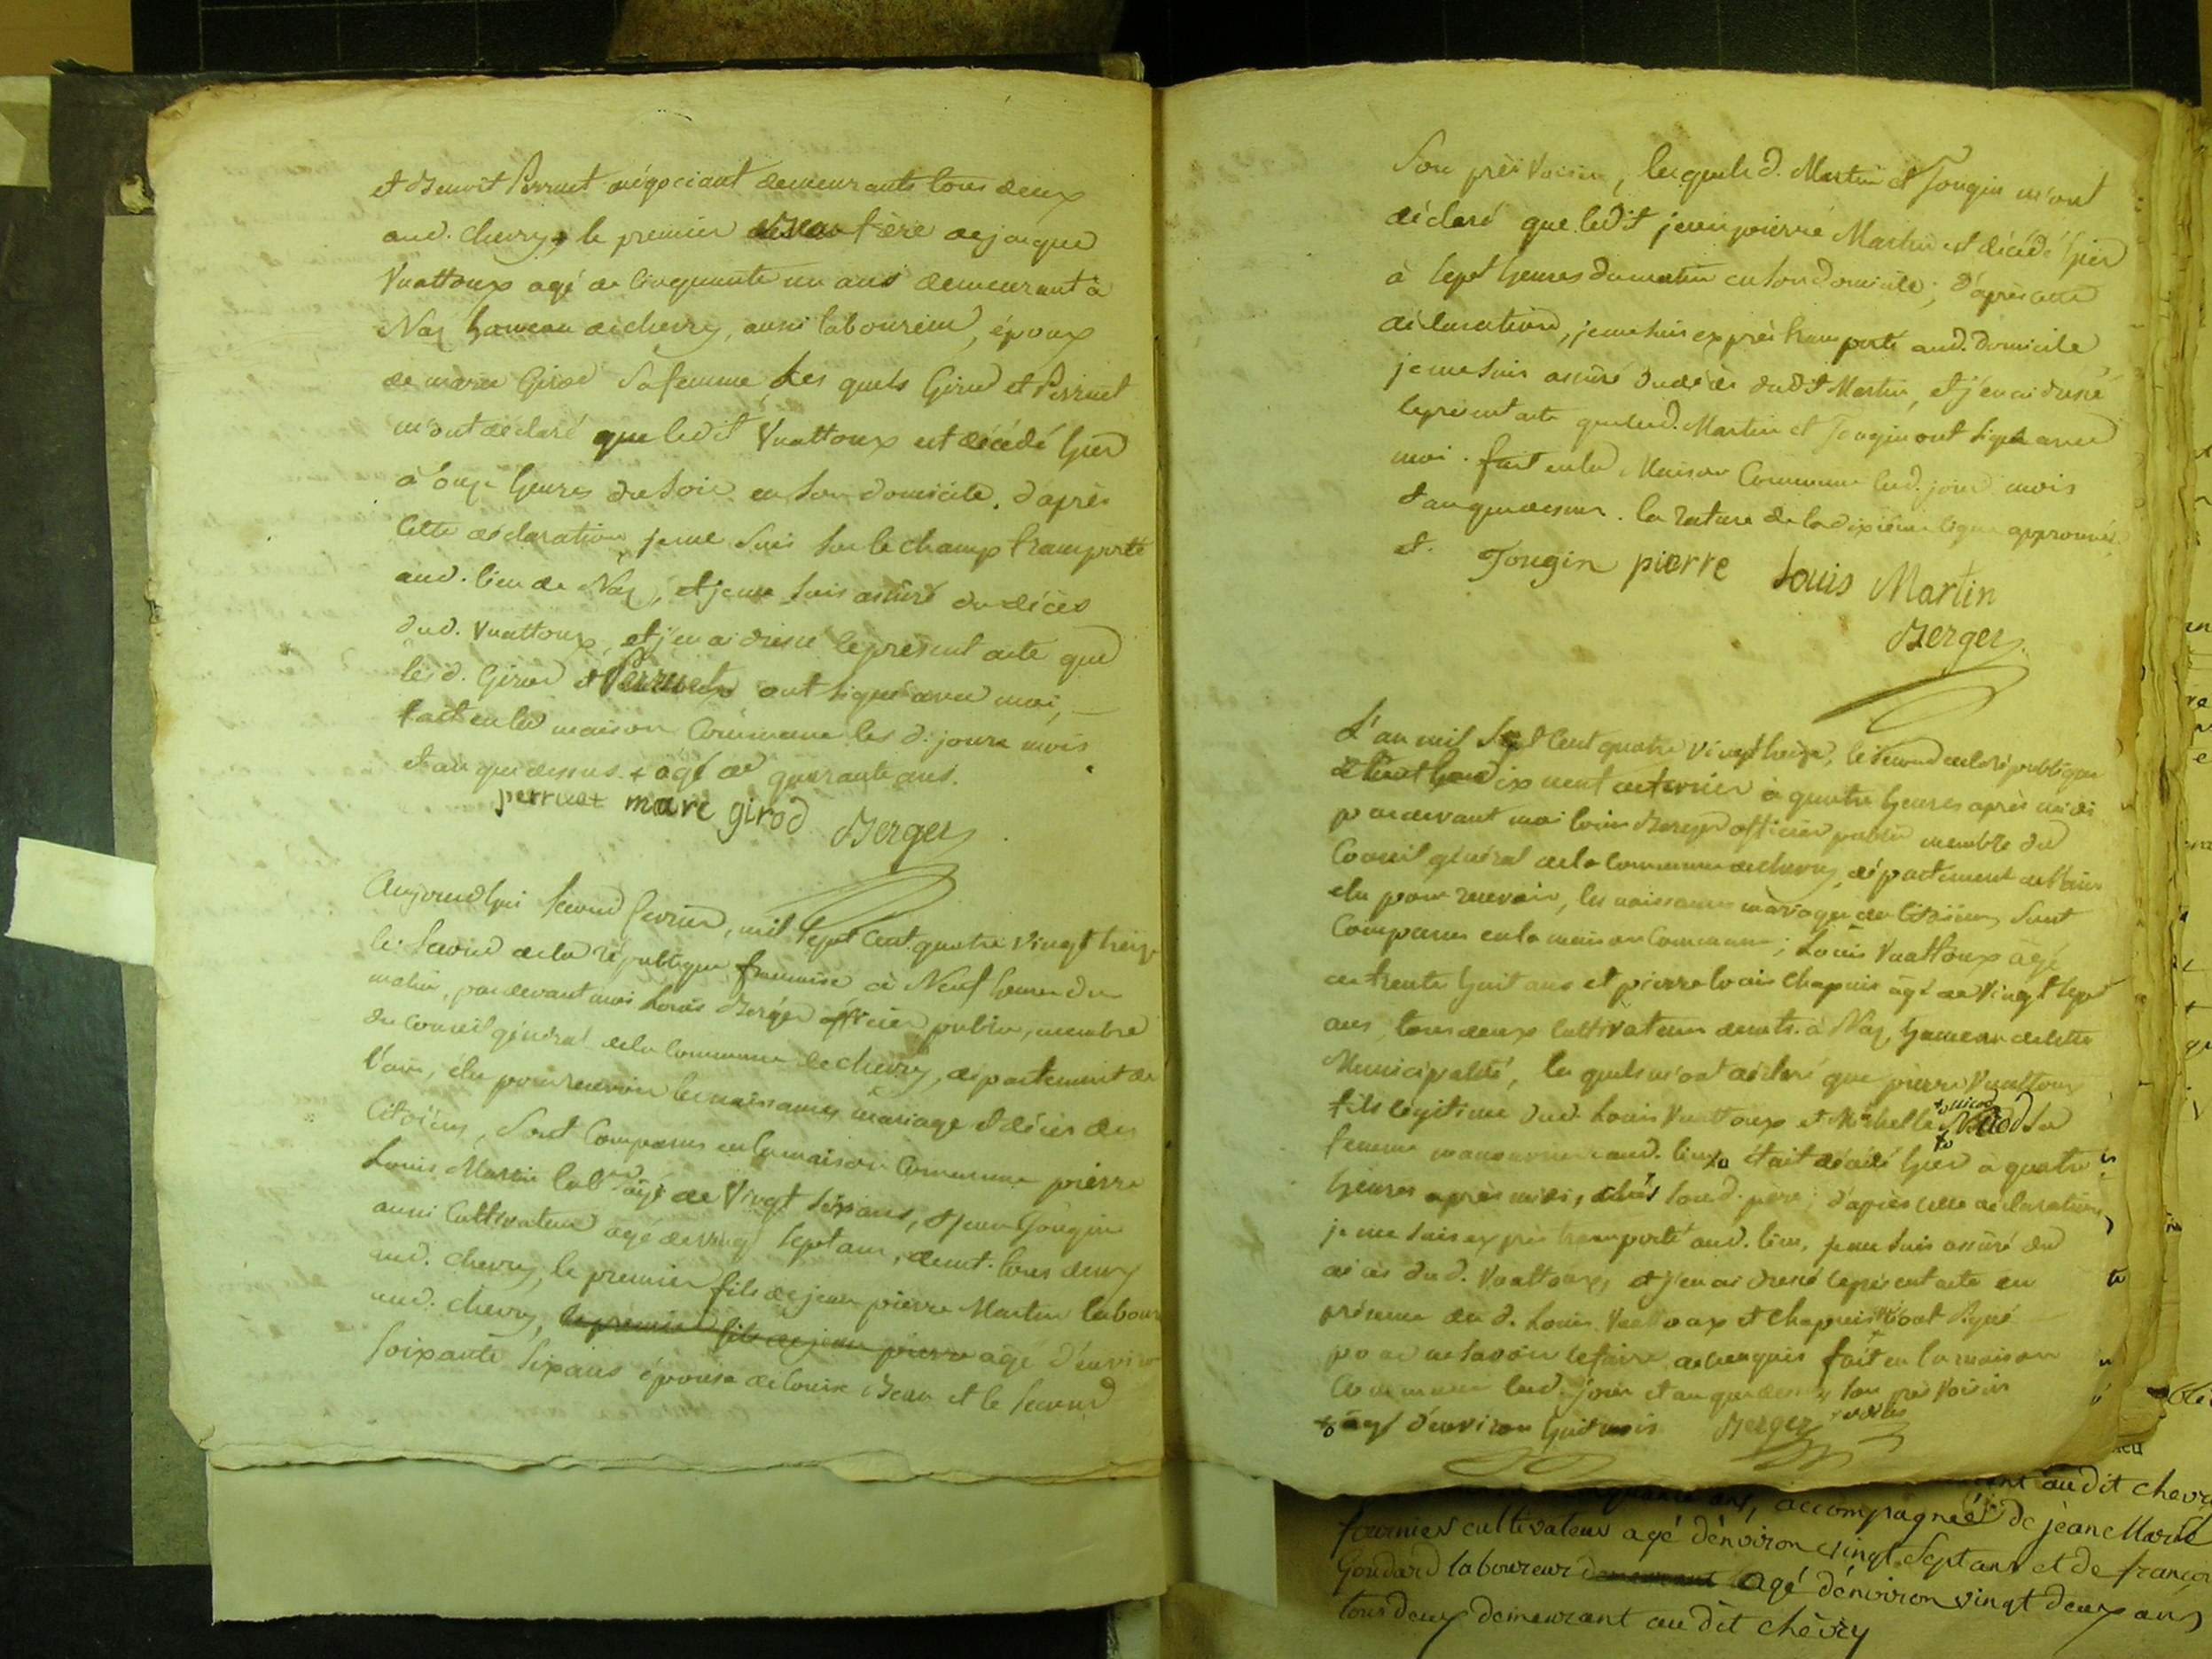 et Benoit Perruet négociant demeurants tous deux
aud. chevry + le premier frère de jacque
Vuattoux agé de Cinquante un ans demeurant à
Naz hameau de chevry, aussi laboureur, époux
de marie Girod Sa femme Les quels Girod et Perruet
m'ont déclaré que ledit Vuattoux est décédé hier
à onze heures du Soir en Son domicile. d'après
Cette déclaration je me Suis Sur le champ transporté
aud. lieu de Naz, et je me Suis assuré du décès
dud. Vuattoux, et j'en ai dressé le présent acte que
les d. Girod et Perruet ont signé avec moi,
fait en la maison Commune les d. jours mois
et an que dessus. + agé de quarante ans.
perruet marc girod Berger
Aujourdhui Second fevrier, mil Sept Cent quatre Vingt treize
le Second de la république française à Neuf heures du
matin, pardevant moi Louis Berger officier public, membre
du Conseil général de la Commune de chevry, département de
l'ain, élu pour recevoir les naissances mariage et décès des
Citoïens, Sont Comparus en la maison Commune pierre
Louis Martin labr agé de Vingt Six ans, et jean Gougin
aussi Cultivateur agé de vingt Sept ans, demt. tous deux
aud. chevry, le premier fils de jean pierre Martin labour
aud. chevry, le premier fils de jean pierre agé d'enviro
Soixante Six ans épouse de Louise Benu et le Second
Son près Voisin, lesquels d. Martin et Jougin m'ont
déclaré que ledit jean pierre Martin est décédé hier
à Sept heures du matin en Son domicile; d'après cette
déclaration, je me suis exprès transporté aud. domicile
je me Suis assuré du décès dudt Martin, et j'en ai dressé
le présent acte que les d. Martin et Jougin ont signé avec
moi. fait en la Maison Commune lesd. jour mois
et an que dessus. la rature de la dixième ligne approuvée.
et. Jougin pierre Louis Martin
Berger
L'an mil Sept Cent quatre vingt treize, le Second de la république
et le dix neuf de fevrier à quatre heures après midi
pardevant moi louis Berger officier public membre du
Conseil général de la Commune de chevry, département de l'ain
élu pour recevoir, les naissances mariages des Citoïens Sont
Comparus en la maison Commune; Louis Vuattoux âgé
de trente huit ans et pierre louis Chapuis agé de Vingt Sept
ans, tous deux Cultivateurs demts. à Naz, hameau de cette
Municipalité, lesquels m'ont déclaré que pierre Vuattoux
fils légitime dud. Louis Vuattoux et Michelle Nicod Sa
femme manouvrier aud. lieu était décédé hier à quatre
heures après midi, chés Sond. père; d'après cette déclaration,
je me Suis exprès transporté aud. lieu, je me Suis assuré du
décès dud. Vuattoux, et j'en ai dressé le présent acte en
présence des d. Louis Vuattoux et Chapuis n'ont Signé
pour ne Savoir le faire, de ce requis fait en la maison
Commune lesd. jour et an que dessus Son près Voisin
agé d'environ huit mois Berger
accompagnée de jean Marie
fournier cultivateur agé dénviron vingt Sept ans et de françoi
Goudard laboureur demeurant agé dénviron vingt deux ans
tous deux demeurant au dit chévry